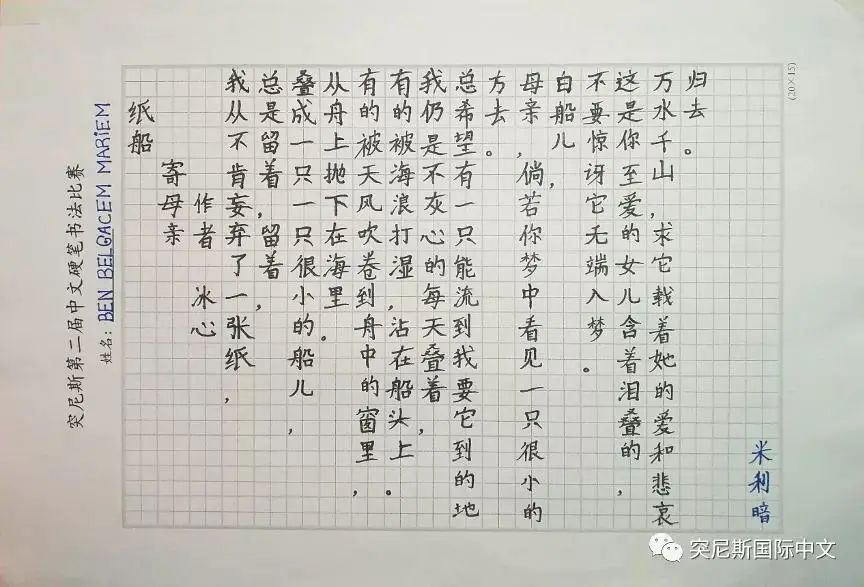 突尼斯第二届中文硬笔书法比赛
姓名: BEN BELGACEM MARIEM
纸船
寄母亲
作者 冰心
我从不肯妄弃了一张纸,
总是留着,留着,
叠成一只一只很小的船儿,
从舟上抛下在海里。
有的被天风吹卷到舟中的窗里,
有的被海浪打湿,沾在船头上。
我仍是不灰心的每天叠着,
总希望有一只能流到我要它到的地
方去。
母亲,倘若你梦中看见一只很小的
白船儿,
不要惊讶它无端入梦。
这是你至爱的女儿含着泪叠的,
万水千山,求它载着她的爱和悲哀
归去。
米利暗
(20×15)
突尼斯国际中文